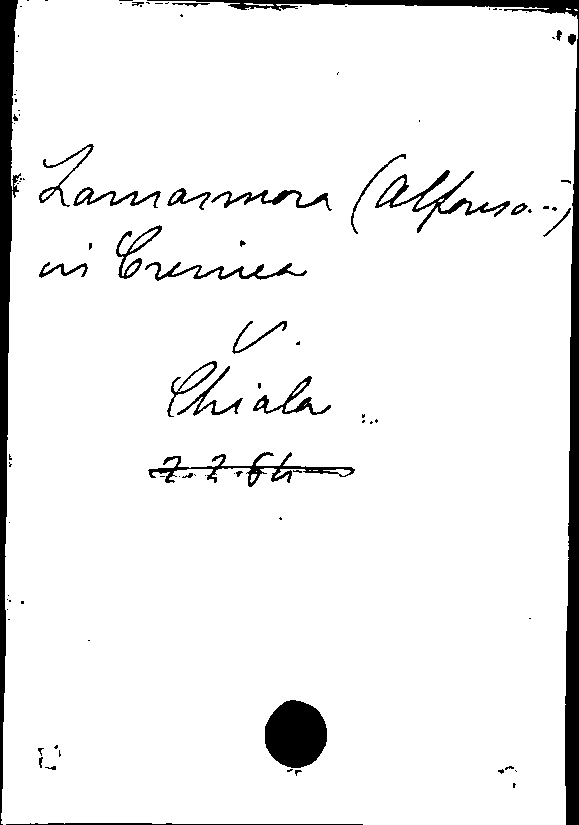 Lamarmora (Alfonso...)
in Crimea
V.
Chiala
2.2.64